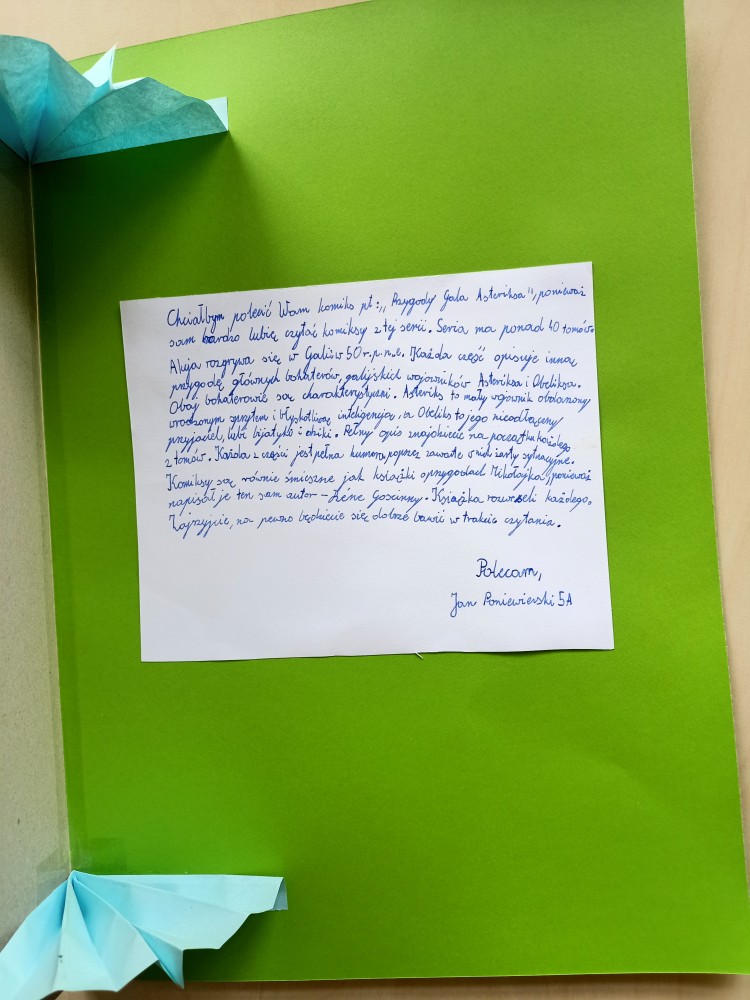 Chciałbym polecić Wam komiks pt: „Przygody Gala Asteriksa", ponieważ
sam bardzo lubię czytać komiksy z tej serii. Seria ma ponad 40 tomów.
Akcja rozgrywa się w Galii w 50 r. p. n. e. Każda część opisuje inną
przygodę głównych bohaterów, galijskich wojowników Asteriksa i Obeliksa.
Obaj bohaterowie są charakterystyczni. Asteriks to mały wojownik obdarzony
wrodzonym sprytem i błyskotliwą inteligencją, a Obeliks to jego nieodłączny
przyjaciel, lubi bijatyki i dziki. Pełny opis znajdziecie na początku każdego
z tomów. Każda z części jest pełna humoru, poprzez zawarte w niej żarty sytuacyjne.
Komiksy są równie śmieszne jak książki o przygodach Mikołajka, ponieważ
napisał je ten sam autor - Réne Gościnny. Książka rozweseli każdego.
Zajrzyjcie, na pewno będziecie się dobrze bawić w trakcie czytania.
Polecam,
Jan Poniewierski 5A